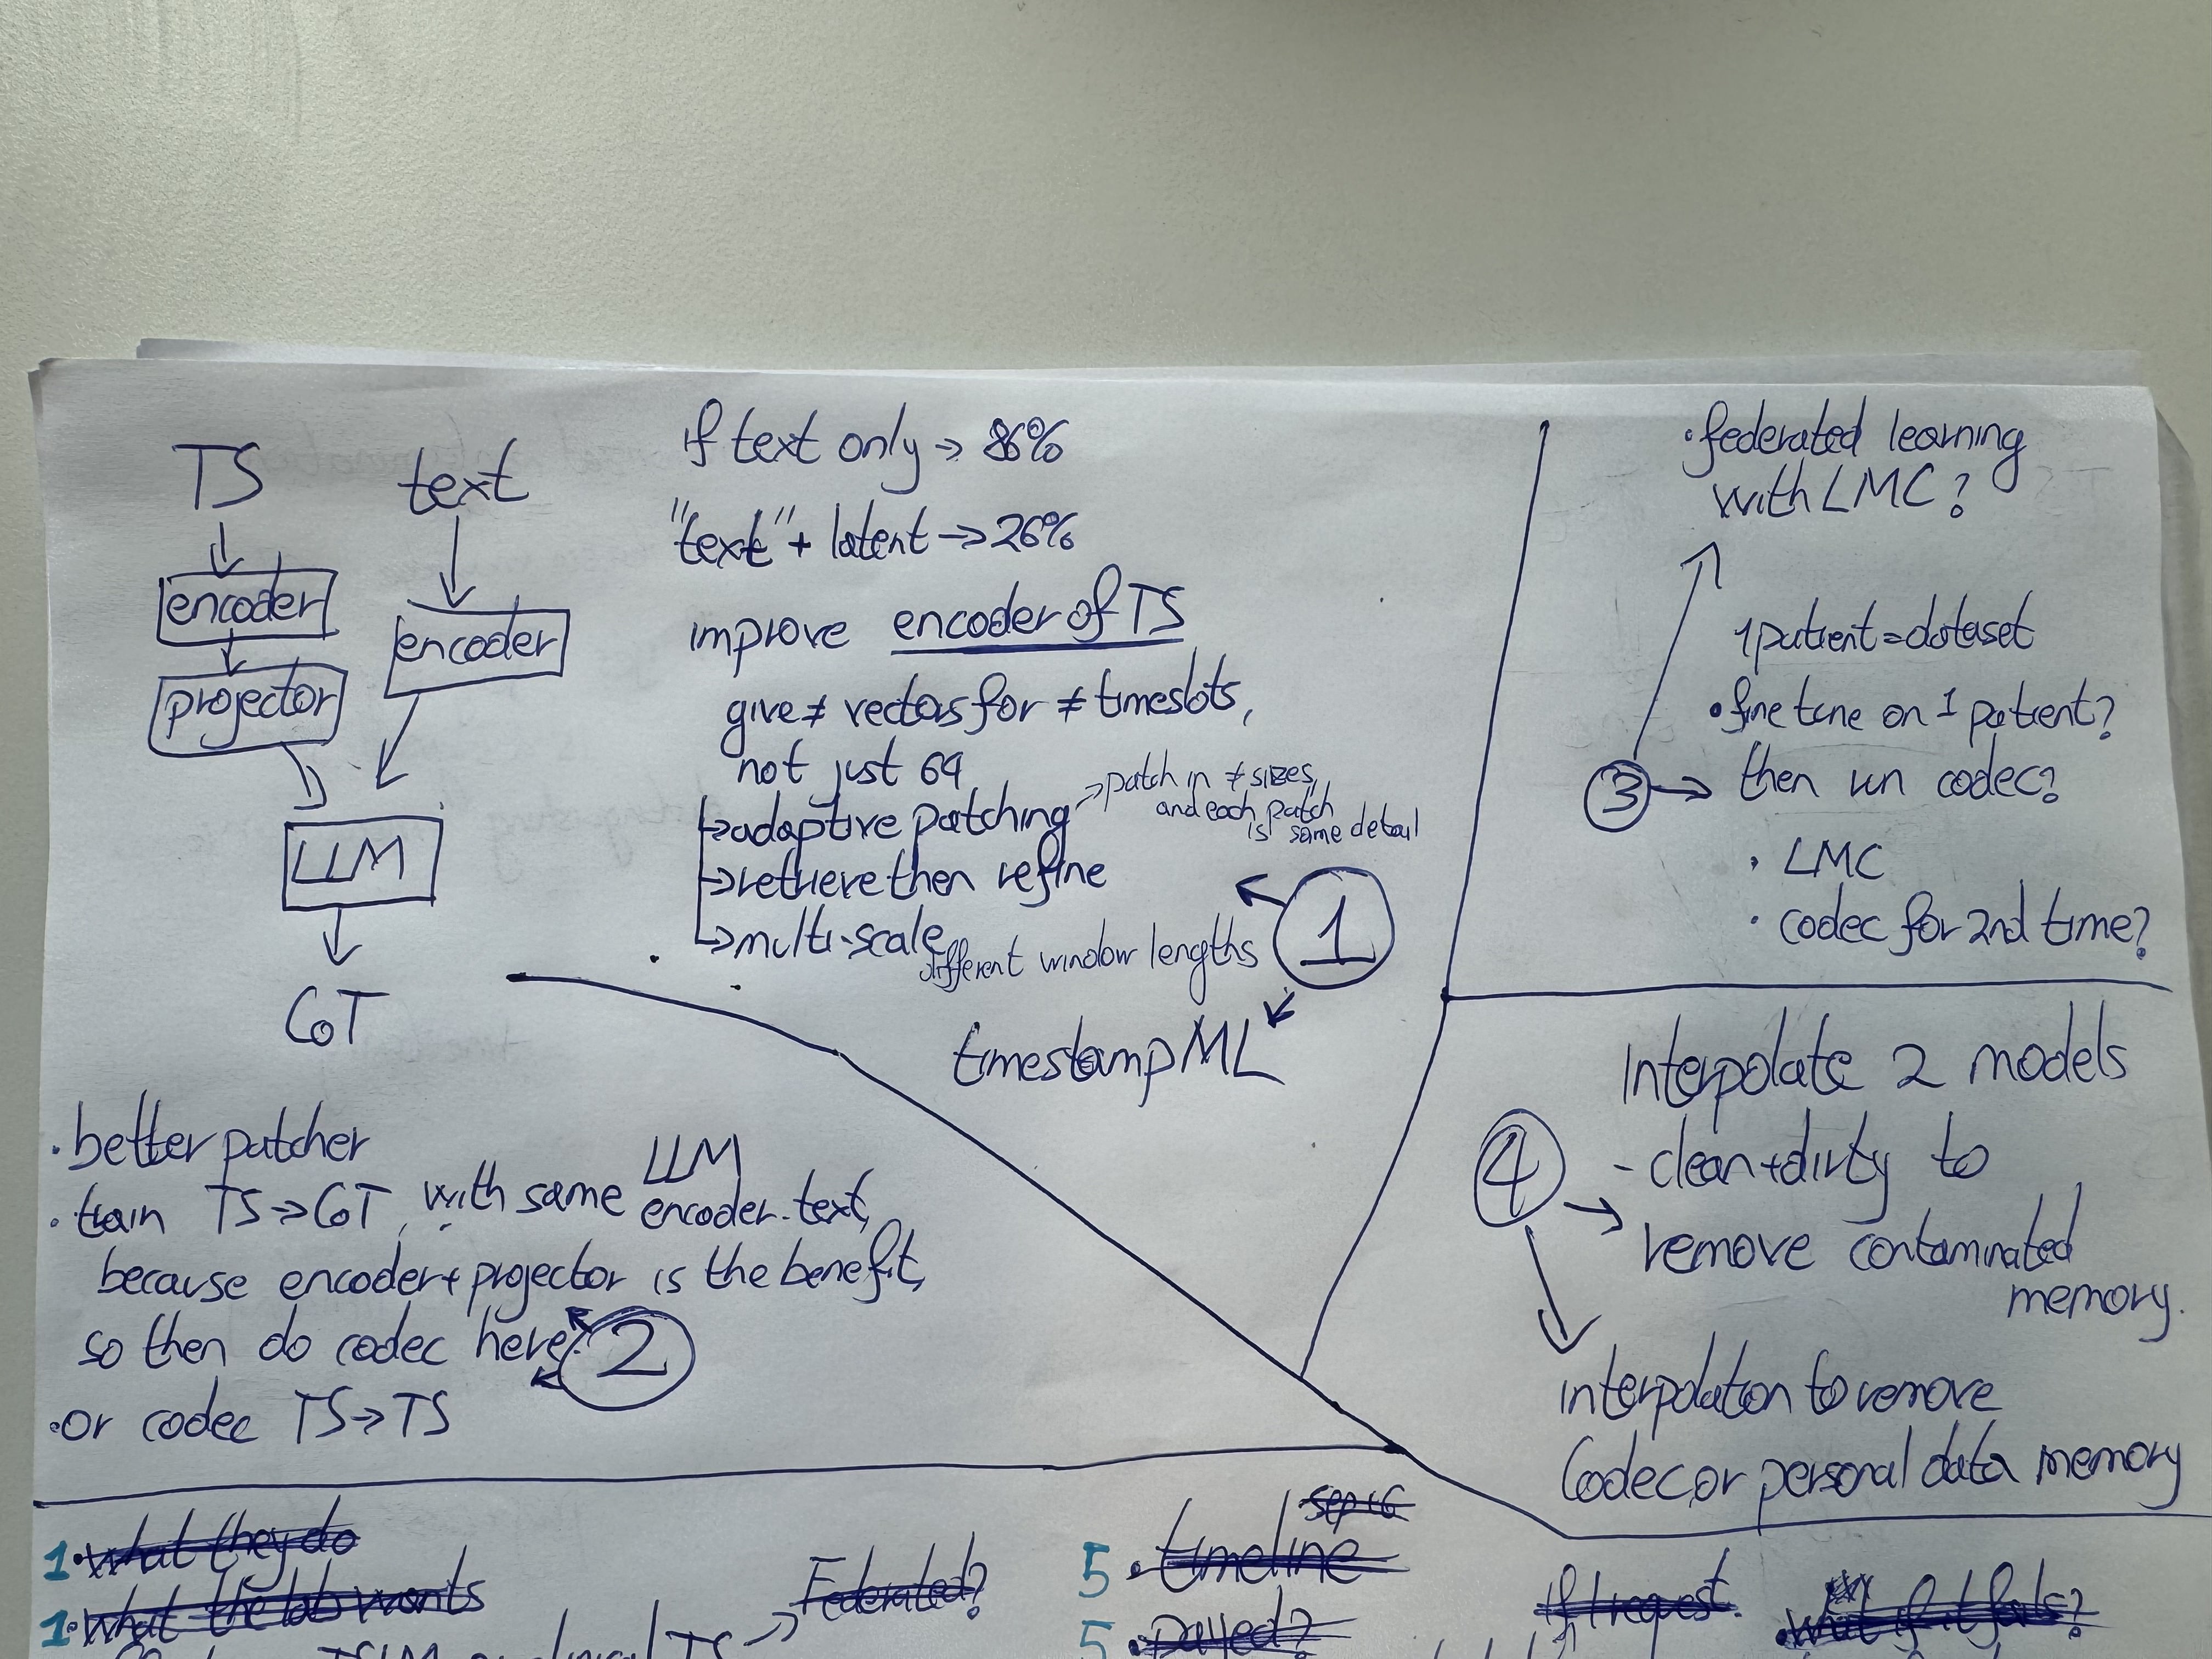 TS
text
encoder
encoder
projector
LLM
CoT
if text only → 86%
"text" + latent → 26%
improve encoder of TS
give ≠ vectors for ≠ timeslots,
not just 64
↳ adaptive patching → patch in ≠ sizes,
and each patch
is same detail
↳ retrieve then refine
↳ multi-scale
different window lengths
1
timestamp ML
• better patcher
• train TS → CoT, with same LLM
encoder.text,
because encoder + projector is the benefit,
so then do codec here?
2
• or codec TS → TS
• federated learning
with LMC?
1 patient = dataset
• fine tune on 1 patient?
3 → then run codec?
• LMC
• codec for 2nd time?
Interpolate 2 models
4
- clean + dirty to
remove contaminated
memory.
interpolation to remove
Codec or personal data memory
1 • what they do
1 • what the lab wants
→ Federated?
sep
5 • timeline
5 • payed?
If I request.
• what if it fails?
TS